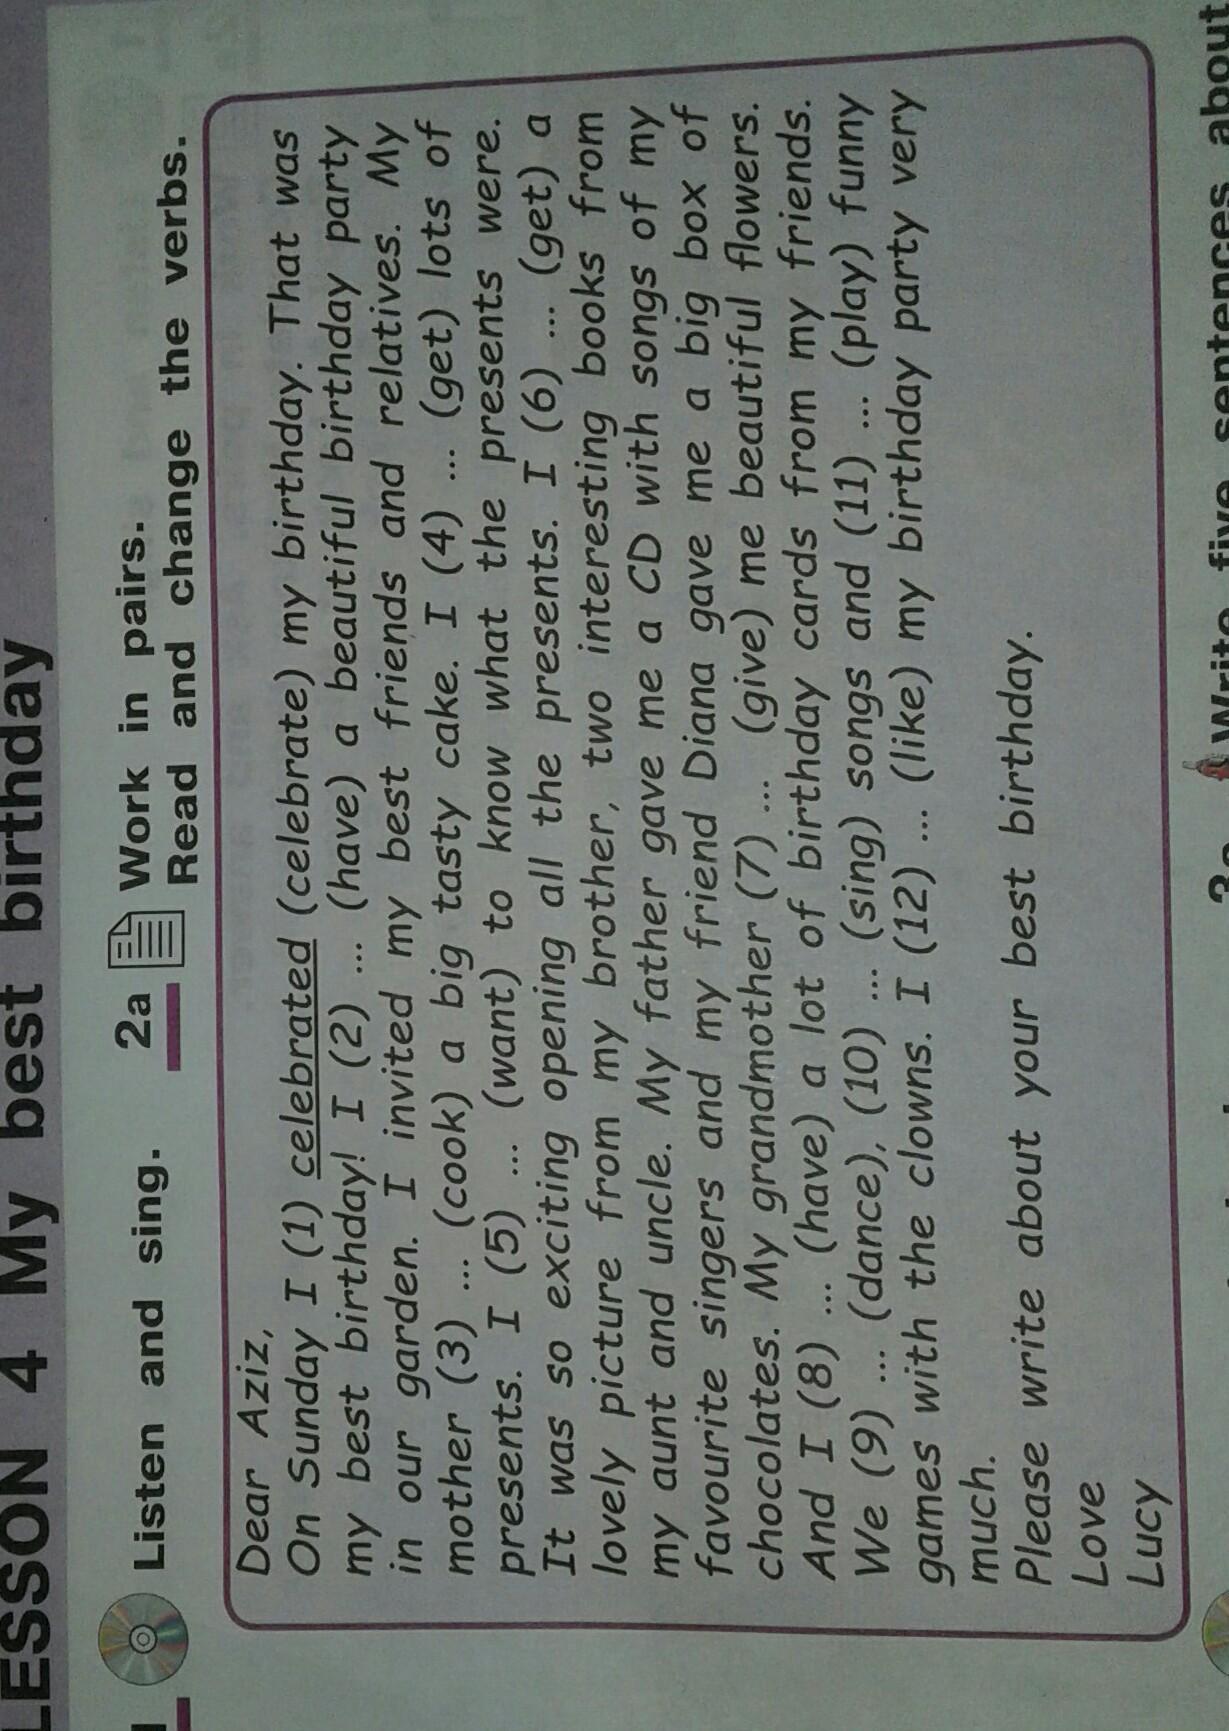 LESSON 4 My best birthday
Listen and sing.
2a Work in pairs.
Read and change the verbs.
Dear Aziz,
On Sunday I (1) celebrated (celebrate) my birthday. That was
my best birthday! I (2) ... (have) a beautiful birthday party
in our garden. I invited my best friends and relatives. My
mother (3) ... (cook) a big tasty cake. I (4) ... (get) lots of
presents. I (5) ... (want) to know what the presents were.
It was so exciting opening all the presents. I (6) ... (get) a
lovely picture from my brother, two interesting books from
my aunt and uncle. My father gave me a CD with songs of my
favourite singers and my friend Diana gave me a big box of
chocolates. My grandmother (7) ... (give) me beautiful flowers.
And I (8) ... (have) a lot of birthday cards from my friends.
We (9) ... (dance), (10) ... (sing) songs and (11) ... (play) funny
games with the clowns. I (12) ... (like) my birthday party very
much.
Please write about your best birthday.
Love
Lucy
Write five sentences about